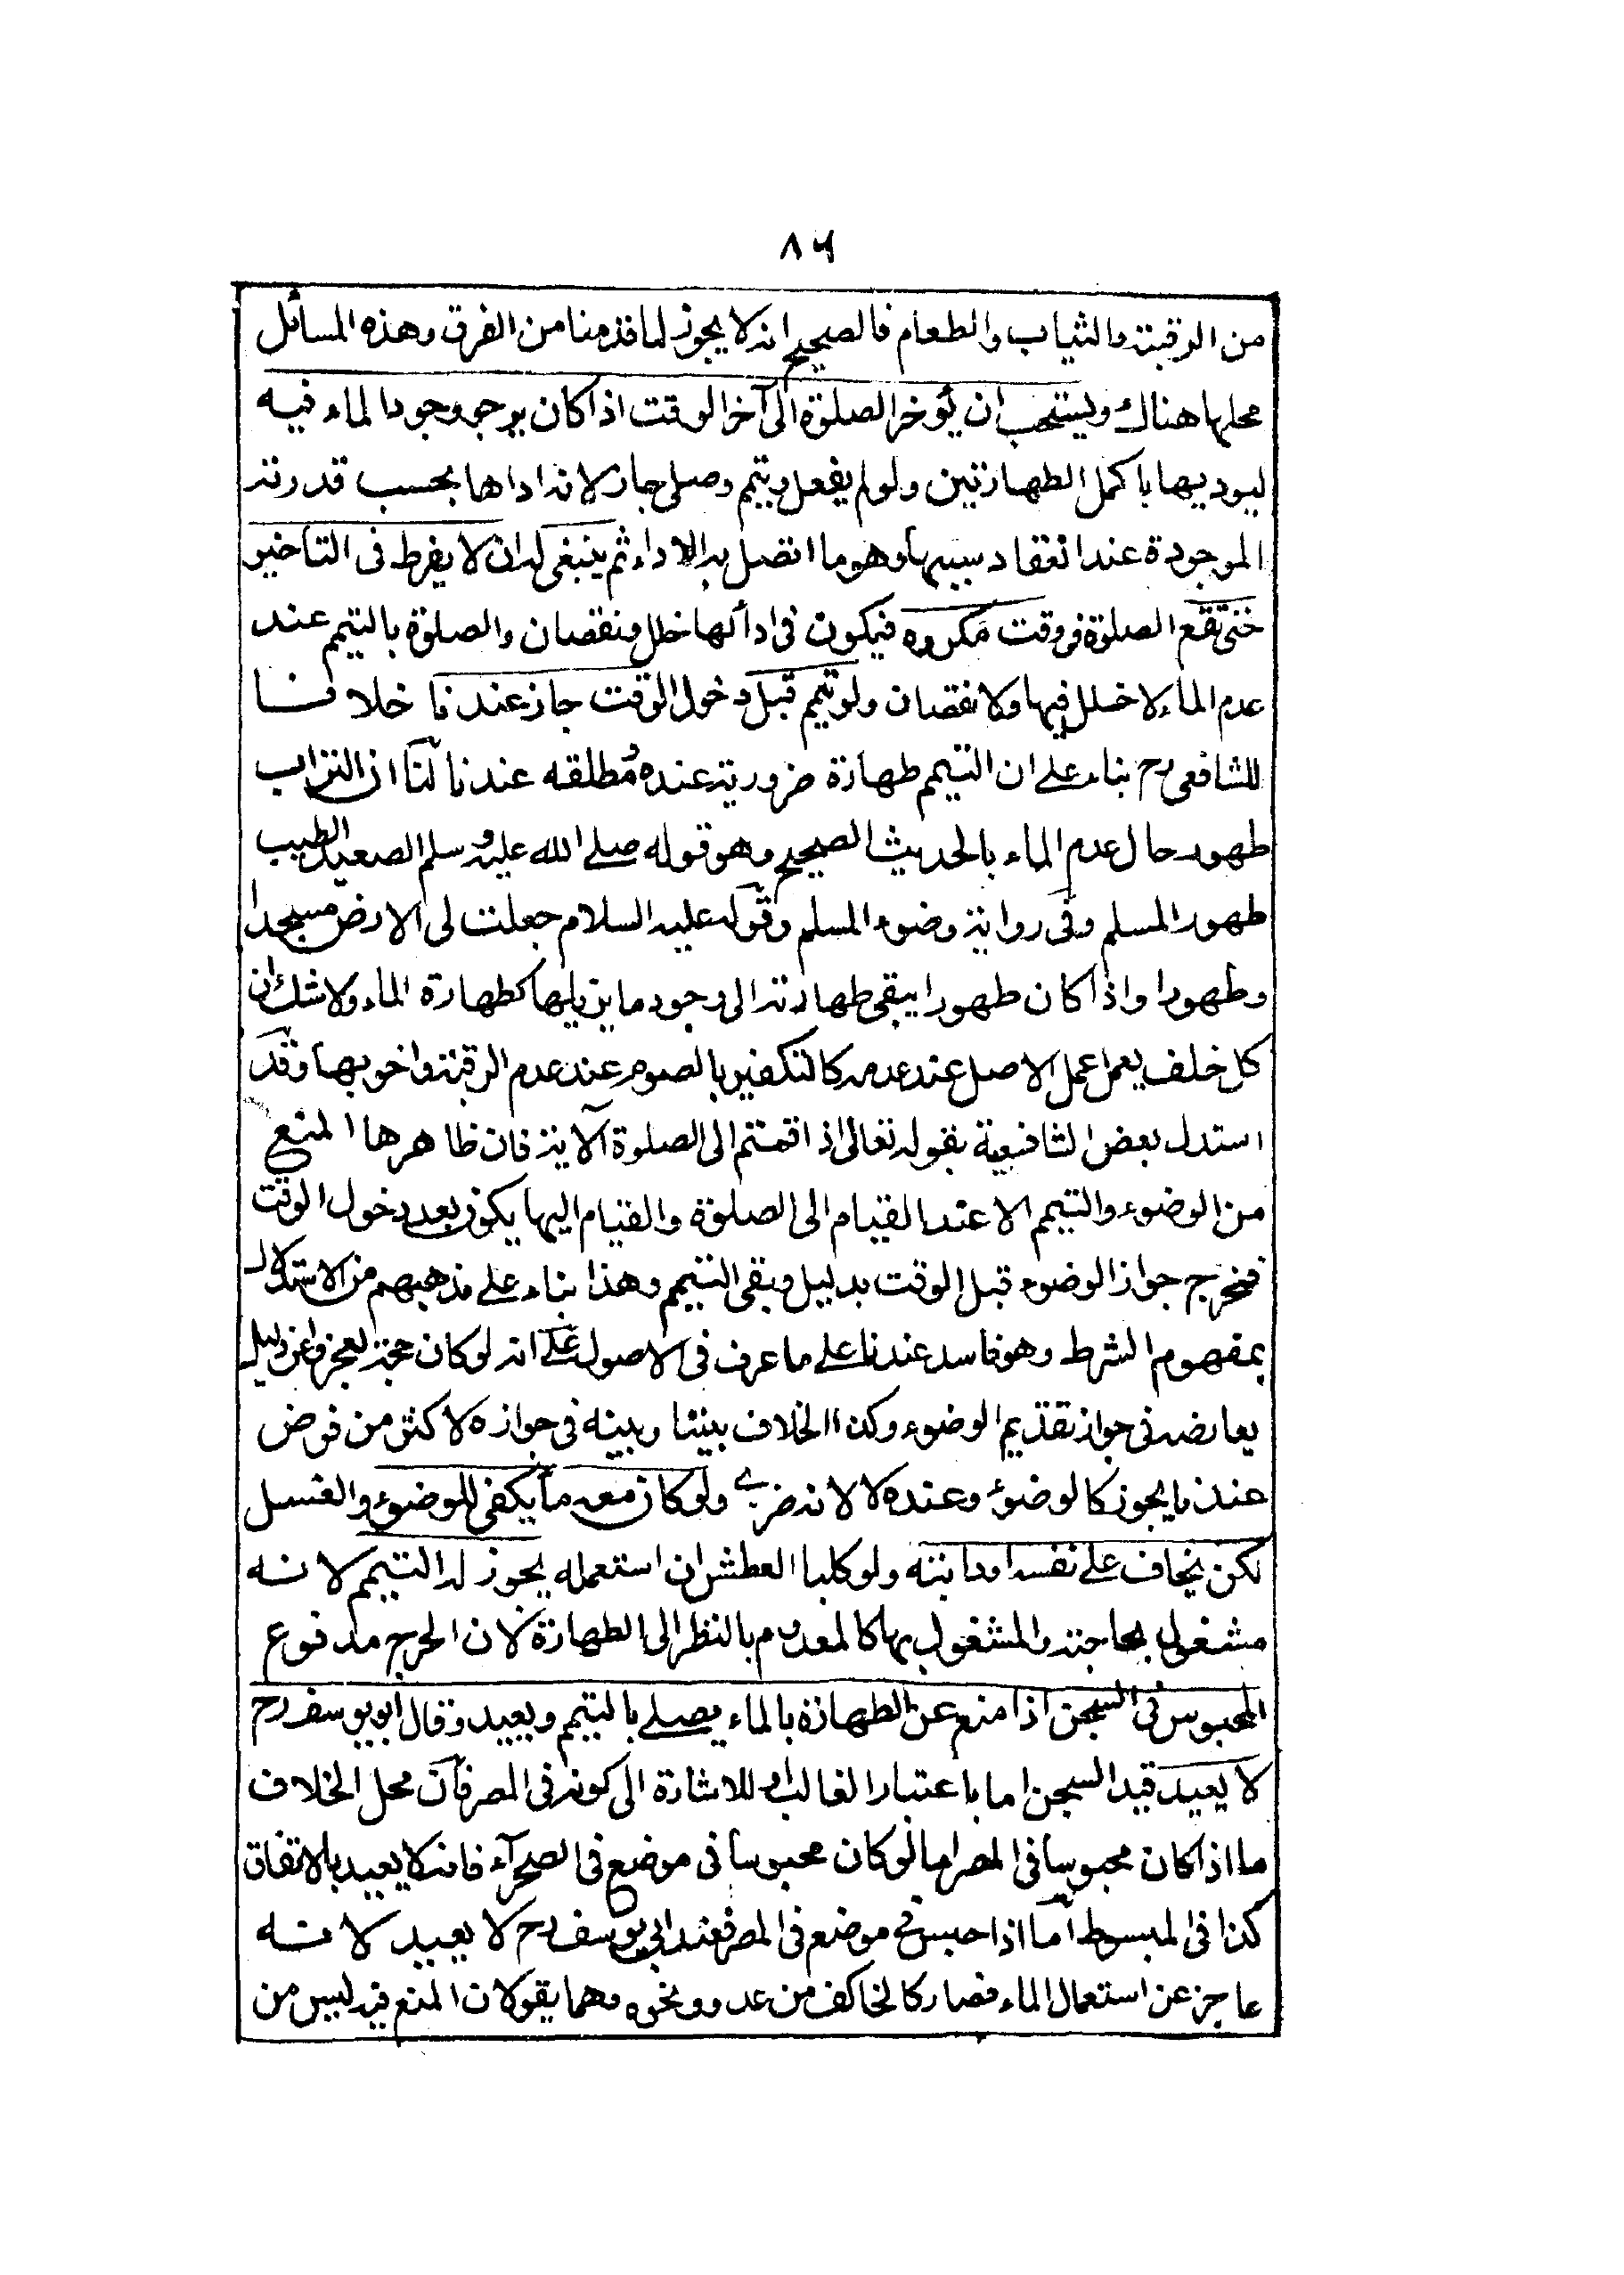 ٨٦
من الرقبة والثياب والطعام فالصحيح انه لا يجوز لما قدمنا من الفرق وهذه المسائل
محلها هناك ويستحب ان يؤخر الصلوة الى آخر الوقت اذا كان يرجو وجود الماء فيه
ليوديها باكمل الطهارتين ولو لم يفعل وتيمم وصلى جاز لانه اداها بحسب قدرته
الموجودة عند انعقاد سببها وهو ما اتصل به الاداء ثم ينبغي له ان لا يفرط فى التاخير
حتى تقع الصلوة فى وقت مكروه فيكون فى ادائها خلل ونقصان والصلوة بالتيمم عند
عدم الماء لا خلل فيها ولا نقصان ولو تيمم قبل دخول الوقت جاز عندنا خلافا
للشافعى رح بناء على ان التيمم طهارة ضرورية عنده مطلقه عندنا لنا ان التراب
طهور حال عدم الماء بالحديث الصحيح وهو قوله صلى الله عليه وسلم الصعيد الطيب
طهور المسلم وفى رواية وضوء المسلم وقوله عليه السلام جعلت لى الارض مسجدا
وطهورا واذا كان طهورا يبقى طهارته الى وجود ما يزيلها كطهارة الماء ولا شك ان
كل خلف يعمل عمل الاصل عند عدمه كالتكفير بالصوم عند عدم الرقبة واخويها وقد
استدل بعض الشافعية بقوله تعالى اذا قمتم الى الصلوة الآية فان ظاهرها المنع
من الوضوء والتيمم الا عند القيام الى الصلوة والقيام اليها يكون بعد دخول الوقت
فخرج جواز الوضوء قبل الوقت بدليل وبقى التيمم وهذا بناء على مذهبهم من الاستدلال
بمفهوم الشرط وهو فاسد عندنا على ما عرف فى الاصول على انه لو كان حجة لعجزوا عن دليل
يعارضه فى جواز تقديم الوضوء وكذا الخلاف بيننا وبينه فى جوازه لاكثر من فرض
عندنا يجوز كالوضوء وعنده لا لانه ضرى ولو كان معه ما يكفى للوضوء والغسل
لكن يخاف على نفسه او دابته ولو كلبا العطش ان استعمله يجوز له التيمم لانه
مشغول بحاجته والمشغول بها كالمعدوم بالنظر الى الطهارة لان الحرج مدفوع
المحبوس فى السجن اذا منع عن الطهارة بالماء يصلى بالتيمم ويعيد وقال ابو يوسف رح
لا يعيد قيد السجن اما باعتبار الغالب او للاشارة الى كونه فى المصر فان محل الخلاف
ما اذا كان محبوسا فى المصر اما لو كان محبوسا فى موضع فى الصحرآء فانه لا يعيد بالاتفاق
كذا فى المبسوط اما اذا حبس فى موضع فى المصر فعند ابى يوسف رح لا يعيد لانه
عاجز عن استعمال الماء فصار كالخائف من عدو ونحوه وهما يقولان المنع فيه ليس من